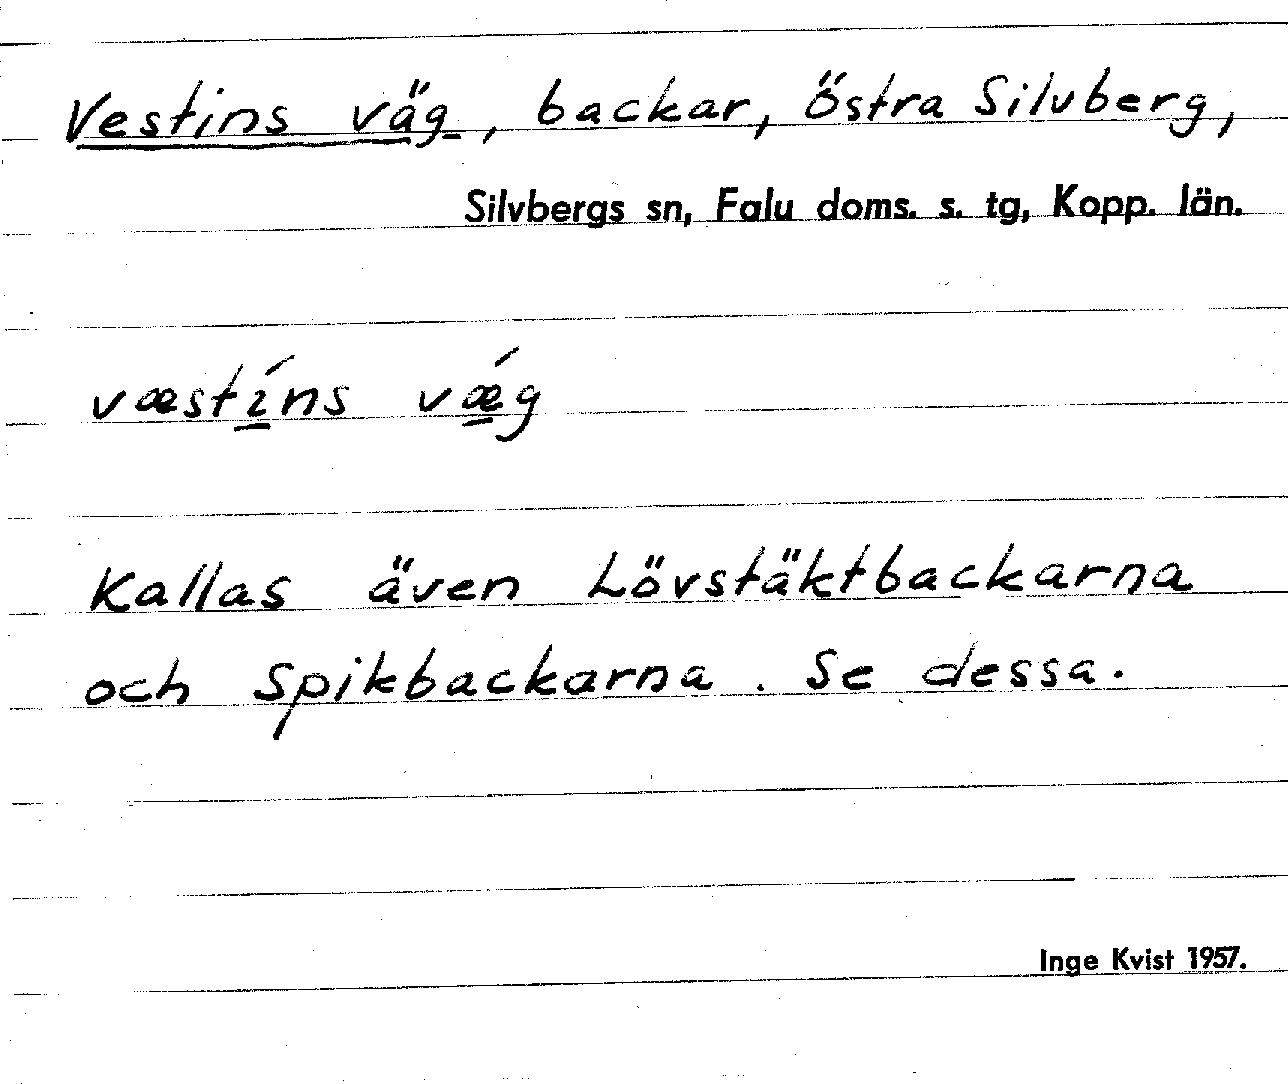 Vestins väg, backar, östra Silvberg,
Silvbergs sn, Falu doms. s. tg, Kopp. län.
væstı̱́ns vǽ̱g
Kallas även Lövstäktbackarna
och Spikbackarna. Se dessa.
Inge Kvist 1957.